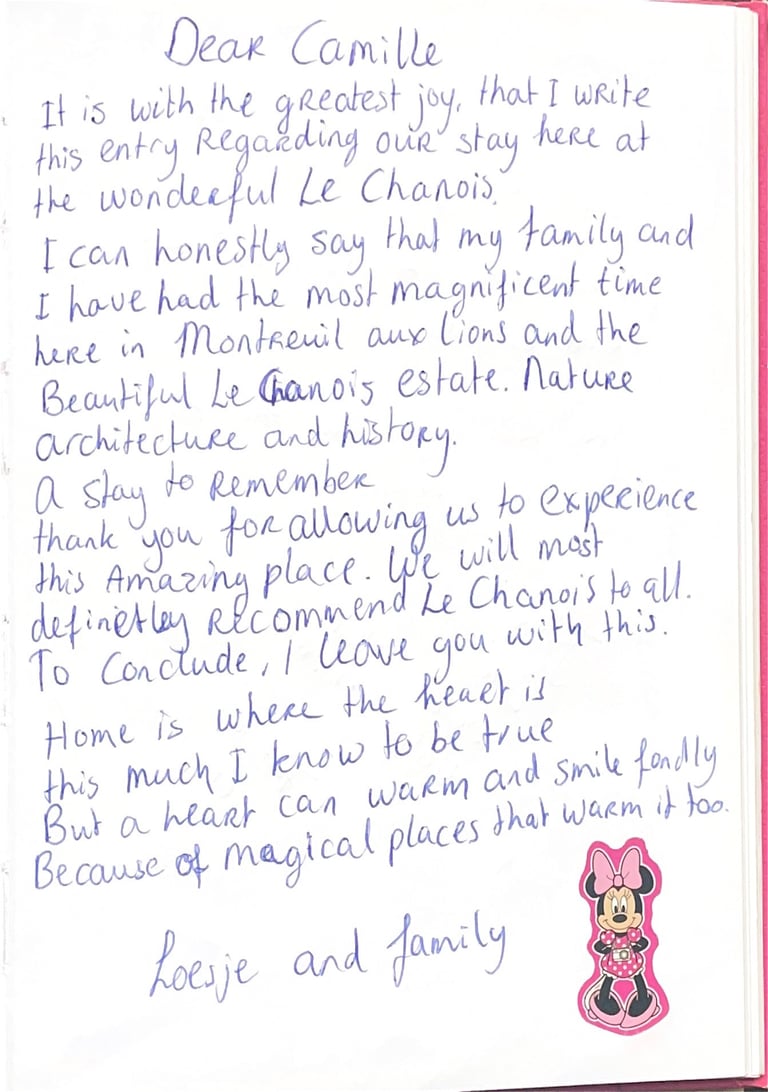 Dear Camille
It is with the greatest joy, that I write
this entry Regarding our stay here at
the wonderful Le Chanois.
I can honestly say that my family and
I have had the most magnificent time
here in Montreuil aux Lions and the
Beautiful Le Chanois estate. Nature
architecture and history.
A stay to Remember
thank you for allowing us to experience
this Amazing place. We will most
definetley Recommend Le Chanois to all.
To Conclude, I leave you with this.
Home is where the heart is
this much I know to be true
But a heart can warm and smile fondly
Because of magical places that warm it too.
Loesje and family